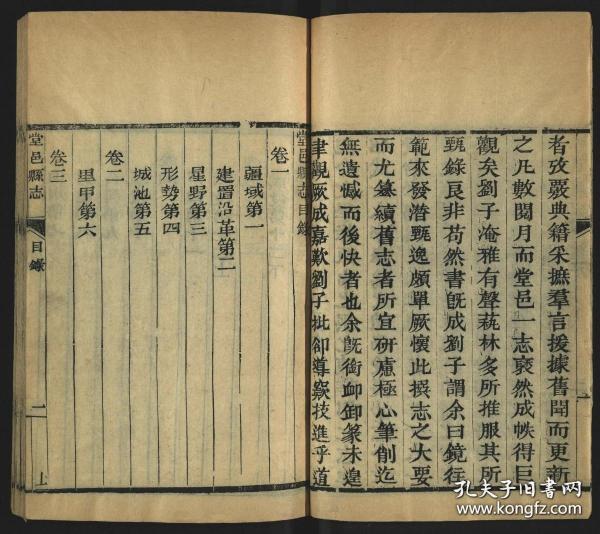 者攷覈典籍采摭羣言援據舊聞而更新
之凡數閱月而堂邑一志裒然成帙得巨
觀矣劉子淹雅有聲蓺林多所推服其所
甄錄良非苟然書旣成劉子謂余曰鏡徃
範來發潛甄逸頗單厥懷此撰志之大要
而尤纂續舊志者所宜研慮極心筆削迄
無遺憾而後快者也余旣銜卹卸篆未遑
聿觀厥成嘉歎劉子批卻導窾技進乎道
堂邑縣志目錄
卷一
疆域第一
建置沿革第二
星野第三
形勢第四
城池第五
卷二
里甲第六
卷三
堂邑縣志
目錄
二
上
孔夫子旧书网
www.kongfz.com